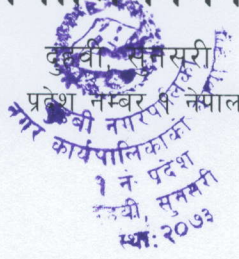 दुहवी, सुनसरी
प्रदेश नम्बर १ नेपाल
नगर कार्यपालिकाको
१ नं. प्रदेश
दुहवी, सुनसरी
स्था: २०७३